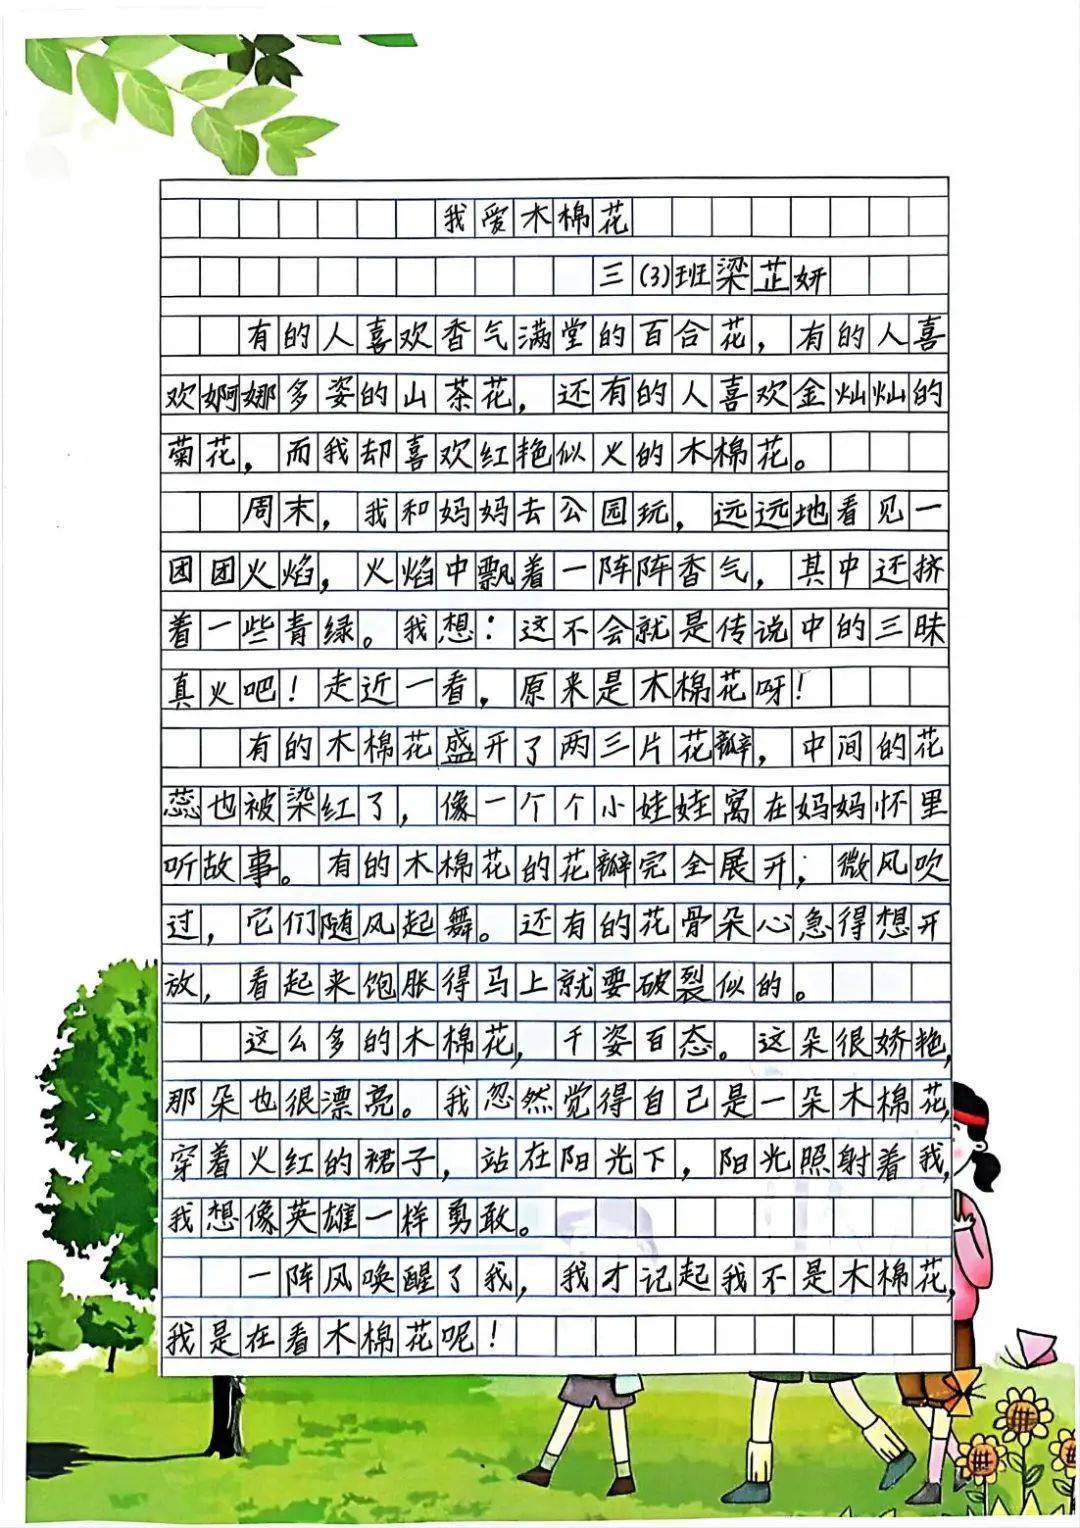 我爱木棉花
三(3)班梁芷妍
有的人喜欢香气满堂的百合花，有的人喜
欢婀娜多姿的山茶花，还有的人喜欢金灿灿的
菊花，而我却喜欢红艳似火的木棉花。
周末，我和妈妈去公园玩，远远地看见一
团团火焰，火焰中飘着一阵阵香气，其中还挤
着一些青绿。我想：这不会就是传说中的三昧
真火吧！走近一看，原来是木棉花呀！
有的木棉花盛开了两三片花瓣，中间的花
蕊也被染红了，像一个个小娃娃窝在妈妈怀里
听故事。有的木棉花的花瓣完全展开；微风吹
过，它们随风起舞。还有的花骨朵心急得想开
放，看起来饱胀得马上就要破裂似的。
这么多的木棉花，千姿百态。这朵很娇艳，
那朵也很漂亮。我忽然觉得自己是一朵木棉花，
穿着火红的裙子，站在阳光下，阳光照射着我，
我想像英雄一样勇敢。
一阵风唤醒了我，我才记起我不是木棉花，
我是在看木棉花呢！